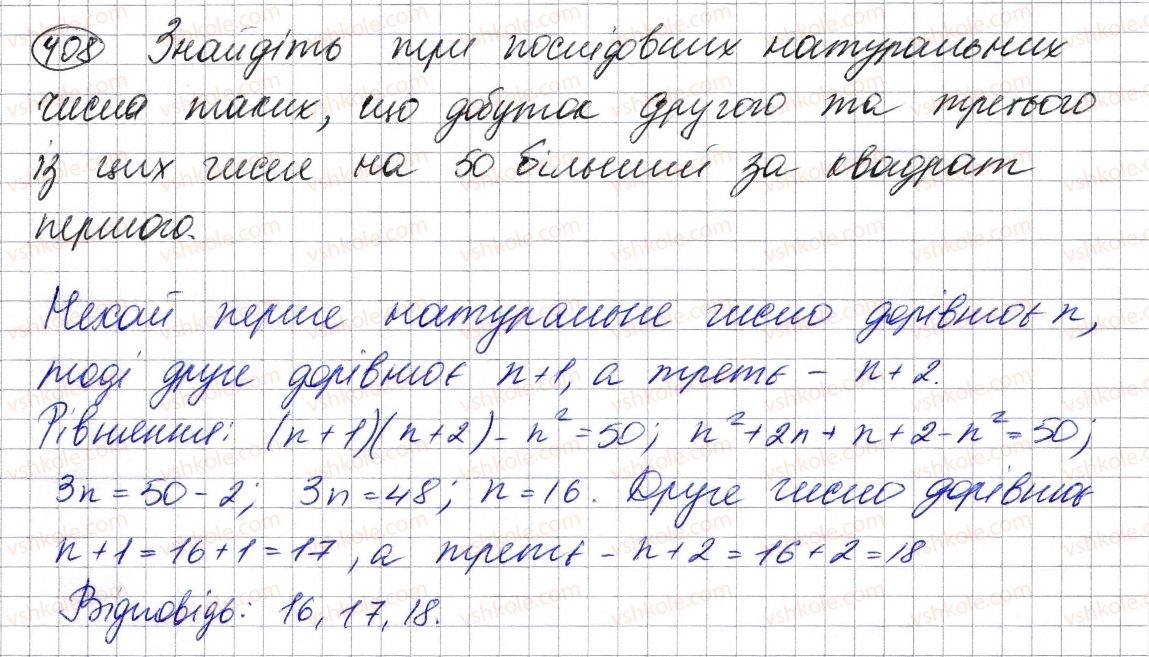 408 Знайдіть три послідовних натуральних
числа таких, що добуток другого та третього
із цих чисел на 50 більший за квадрат
першого.
Нехай перше натуральне число дорівнює n,
тоді друге дорівнює n+1, а третє – n+2.
Рівняння: (n+1)(n+2)-n²=50; n²+2n+n+2-n²=50;
3n=50-2; 3n=48; n=16. Друге число дорівнює
n+1=16+1=17, а третє – n+2=16+2=18
Відповідь: 16, 17, 18.